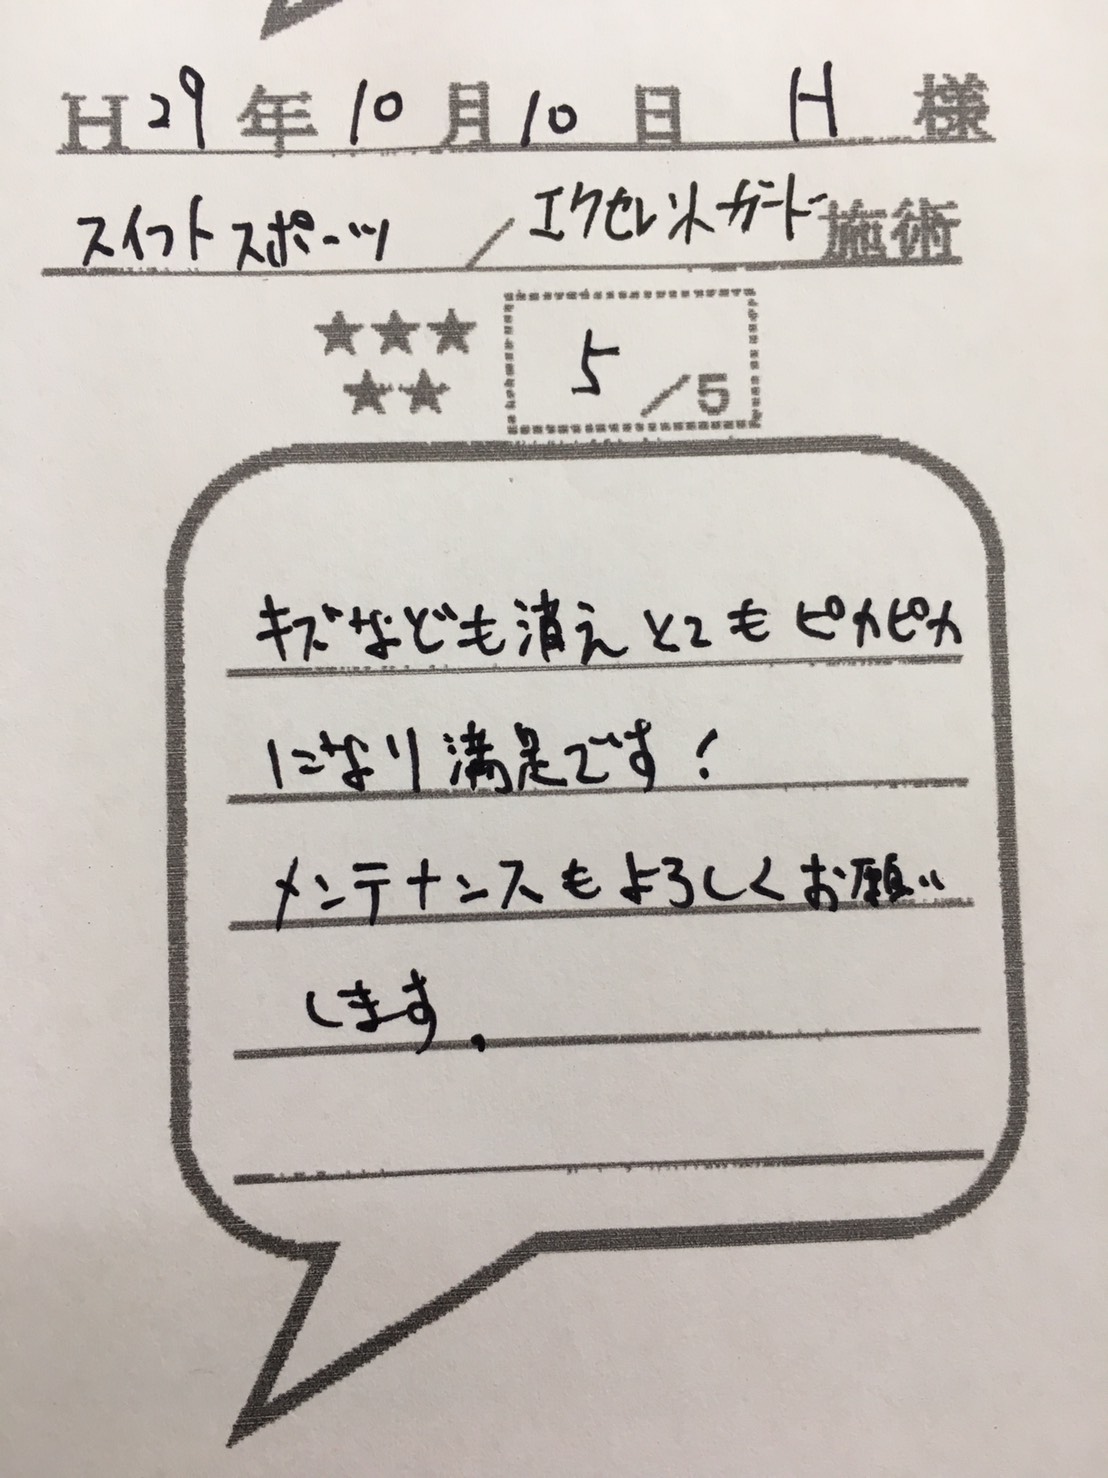 H29年10月10日 H 様
スイフトスポーツ／エクセレントガード施術
★★★
★★
5／5
キズなども消えとてもピカピカ
になり満足です！
メンテナンスもよろしくお願い
します。